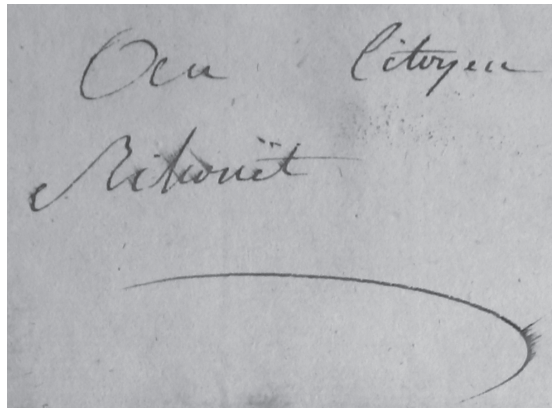 Au Citoyen
Rihouët